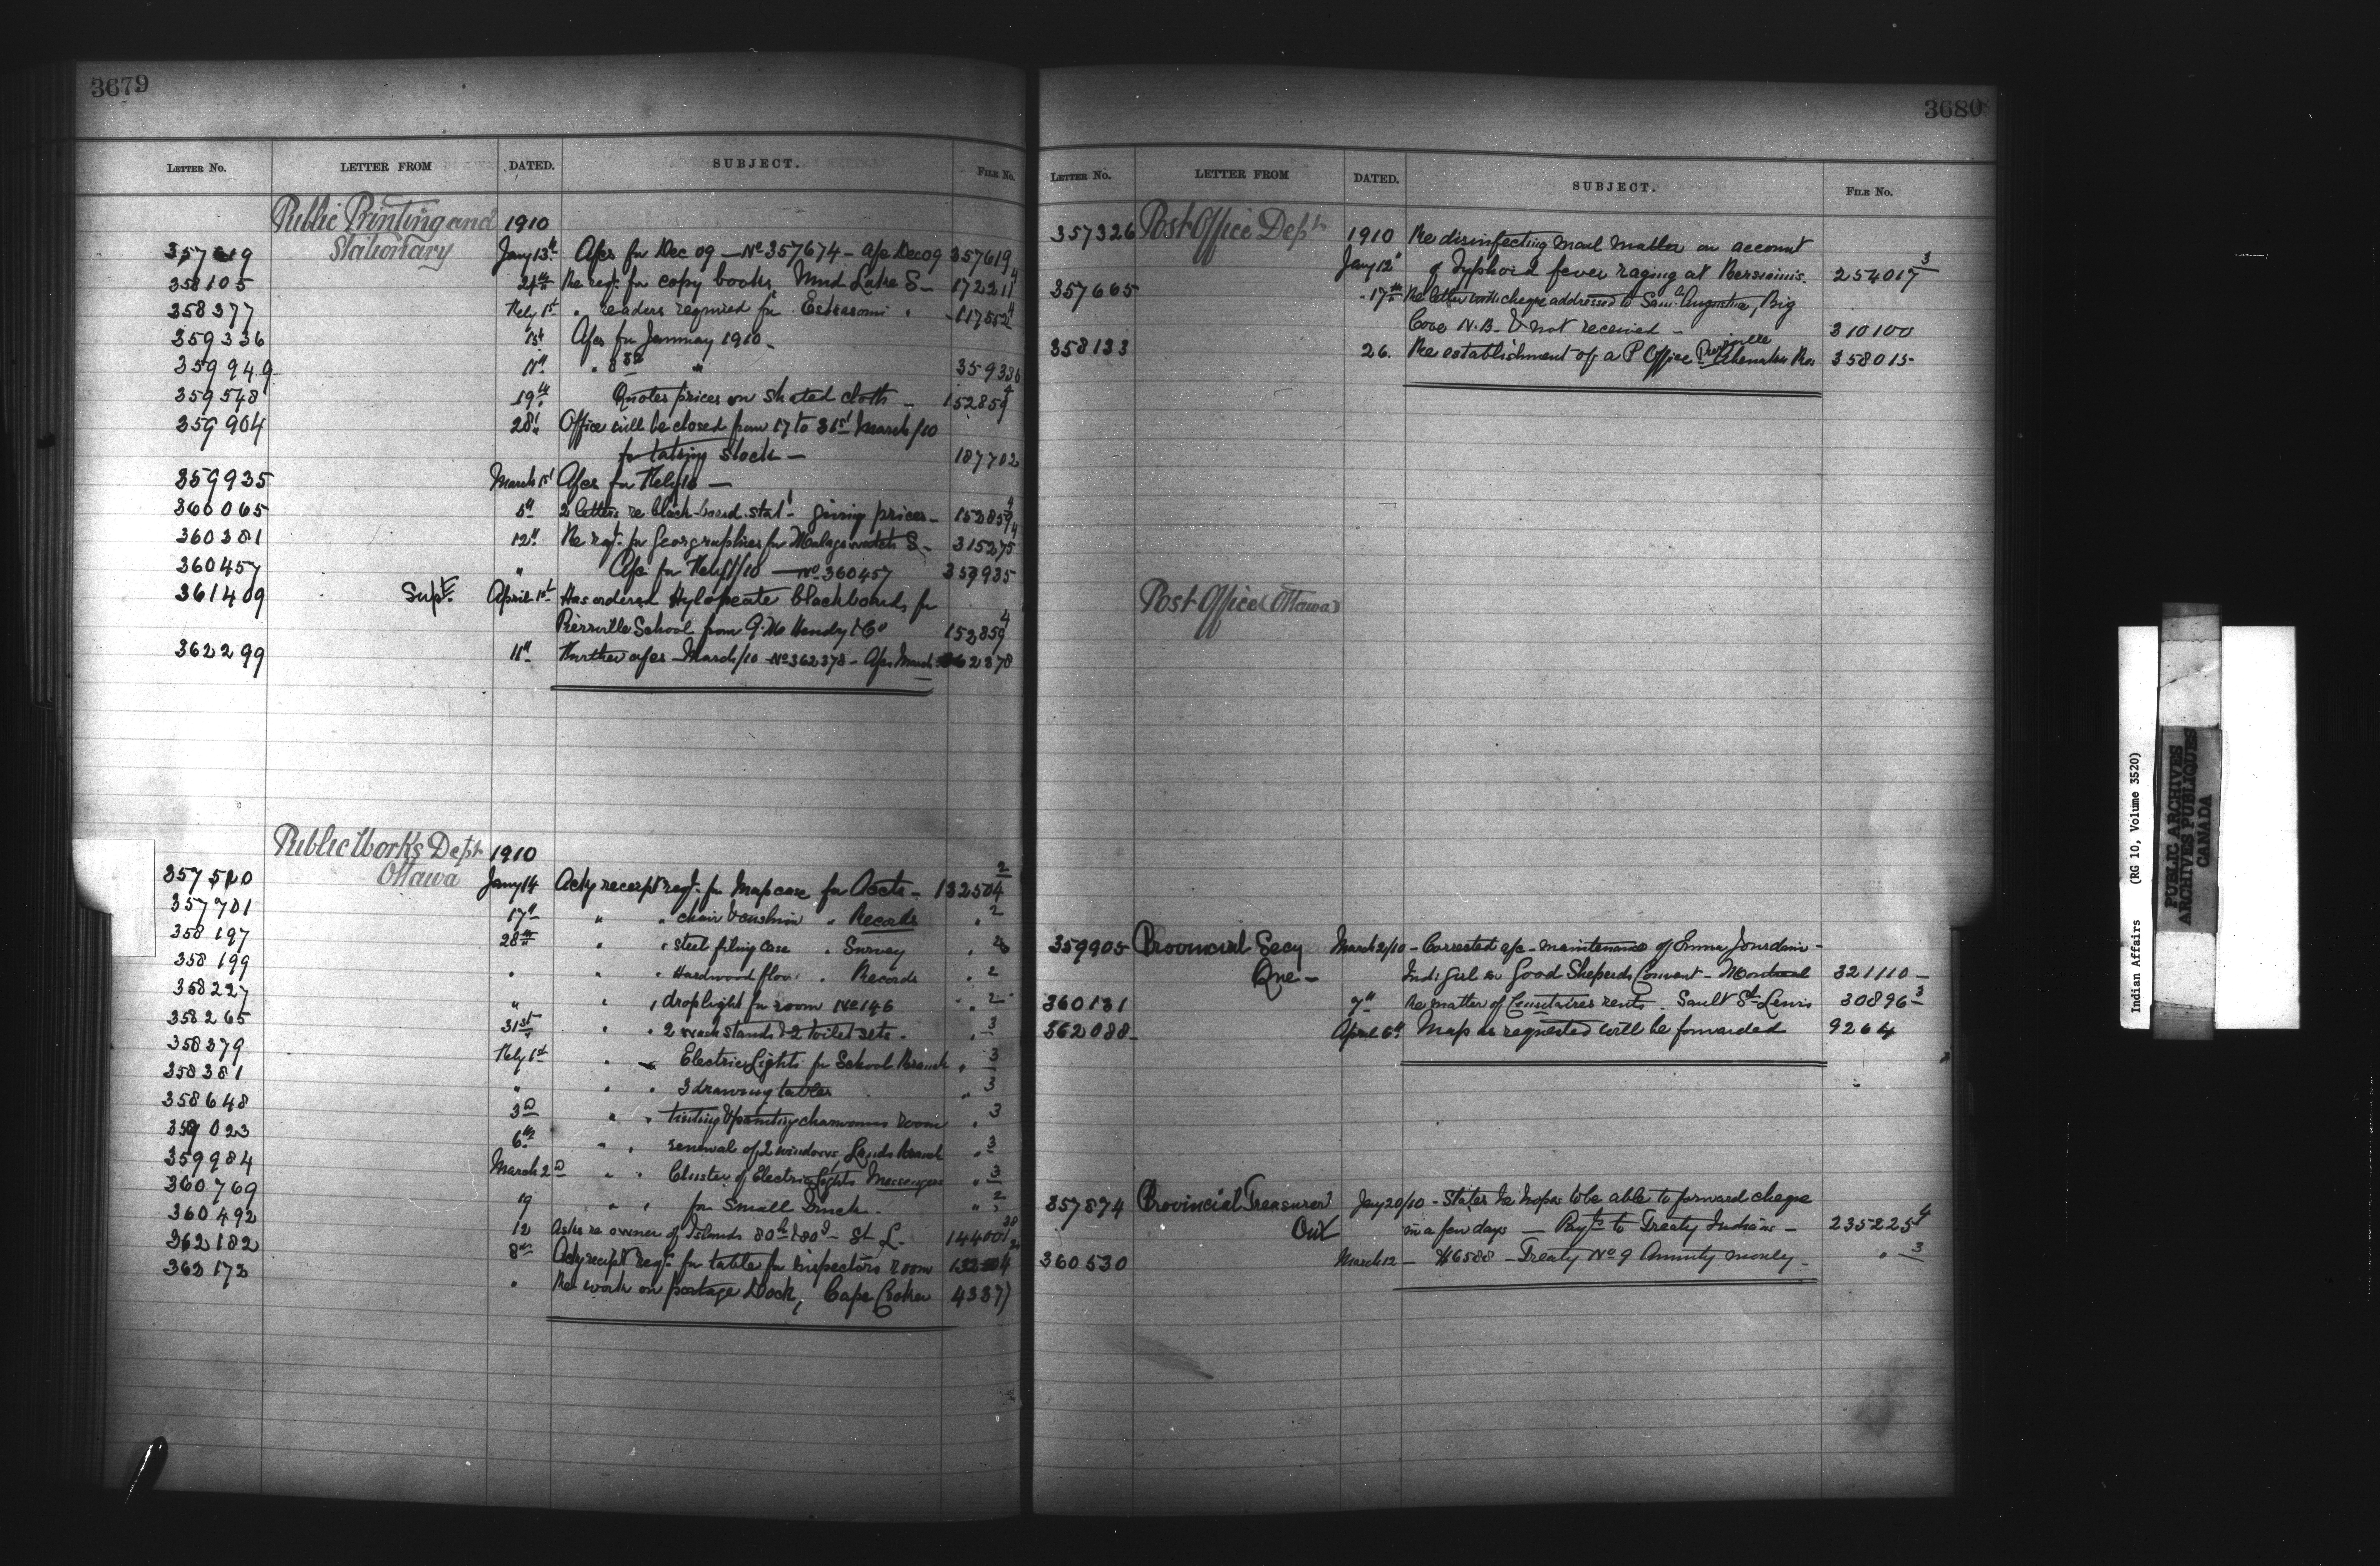 3679
LETTER NO. LETTER FROM DATED. SUBJECT. FILE NO.
Public Printing and 1910
357619 Stationary Jany 13th A/cs for Dec 09 — No 357674 — a/c Dec 09 357619
358105 21st Re reqt. for copy books, Mud Lake S — 172211 4
358377 Feby 1st " readers required for Eskasoni " 117552 4
359336 1st A/cs for January 1910 —
359949 11th " " 359336
359548 19th Quotes prices on cloth — 152859 4
359904 28th Office will be closed from 17 to 31st March/10
for taking stock — 187702
359935 March 1st A/cs for Feby 10 —
360065 5th 2 letters re black-board giving prices — 152859 4
360381 12th Re reqt. for Geographies for S — 315275 4
360457 " A/c for Feby/10 — No 360457 359935
361409 Supt. April 1st Has ordered Hyloplate blackboards for
Pierrville School from G. M. Hendry & Co 152859 4
362299 11th Further a/cs — March/10 — No 362378 — A/cs March 362378
Public Works Dept 1910
357510 Ottawa Jany 14 Ackg receipt reqt. for Map case for Accts — 132504 2
357701 17th " " chair & cushion " Records " 2
358197 28th " " steel filing case " Survey "
358199 " " " Hardwood floor " Records " 2
358227 " " " droplight for room No 146 " 2
358265 31st " " 2 wash stands & 2 toilet sets — " 3
358379 Feby 1st " " Electric Lights for School Branch " 3
358381 " " " 3 drawing tables " 3
358648 3d " " tinting & painting charwomans room " 3
359023 6th " " renewal of 2 windows, Lands Branch " 3
359984 March 2d " " Cluster of Electric Lights Messengers " 3
360769 19 " " for Small " 3
360492 12 Asks re owner of Islands 80 & 80 — St L. 144001
362182 8th Ackg receipt reqt. for table for Inspectors room 132504
362172 " Re work on portage Dock, Cape Croker 43371
3680
LETTER NO. LETTER FROM DATED. SUBJECT. FILE NO.
357326 Post Office Dept 1910 Re disinfecting mail matter on account
Jany 12" of Typhoid fever raging at Bersimis. 254017 3
357665 " 17th Re letter with cheque addressed to Saml. Augustine, Big
Cove N.B. & not received — 310100
358133 26. Re establishment of a P Office Res 358015
Post Office (Ottawa)
359905 Provincial Secy March 2/10 — Corrected a/c — maintenance of Emma Jourdain —
Que — Indi girl in Good Sheperds Convent — Montreal 321110 —
360131 7th Re matter of Censitaires rents. Sault St. Louis 30896 3
362088 April 6th Map as requested will be forwarded 9264
357874 Provincial Treasurer Jany 20/10 — States he hopes to be able to forward cheque
Ont in a few days — Payts. to Treaty Indians — 235225 4
360530 March 12 — $16588 — Treaty No 9 Annuity money — " 3
Indian Affairs (RG 10, Volume 3520)
PUBLIC ARCHIVES
ARCHIVES PUBLIQUES
CANADA